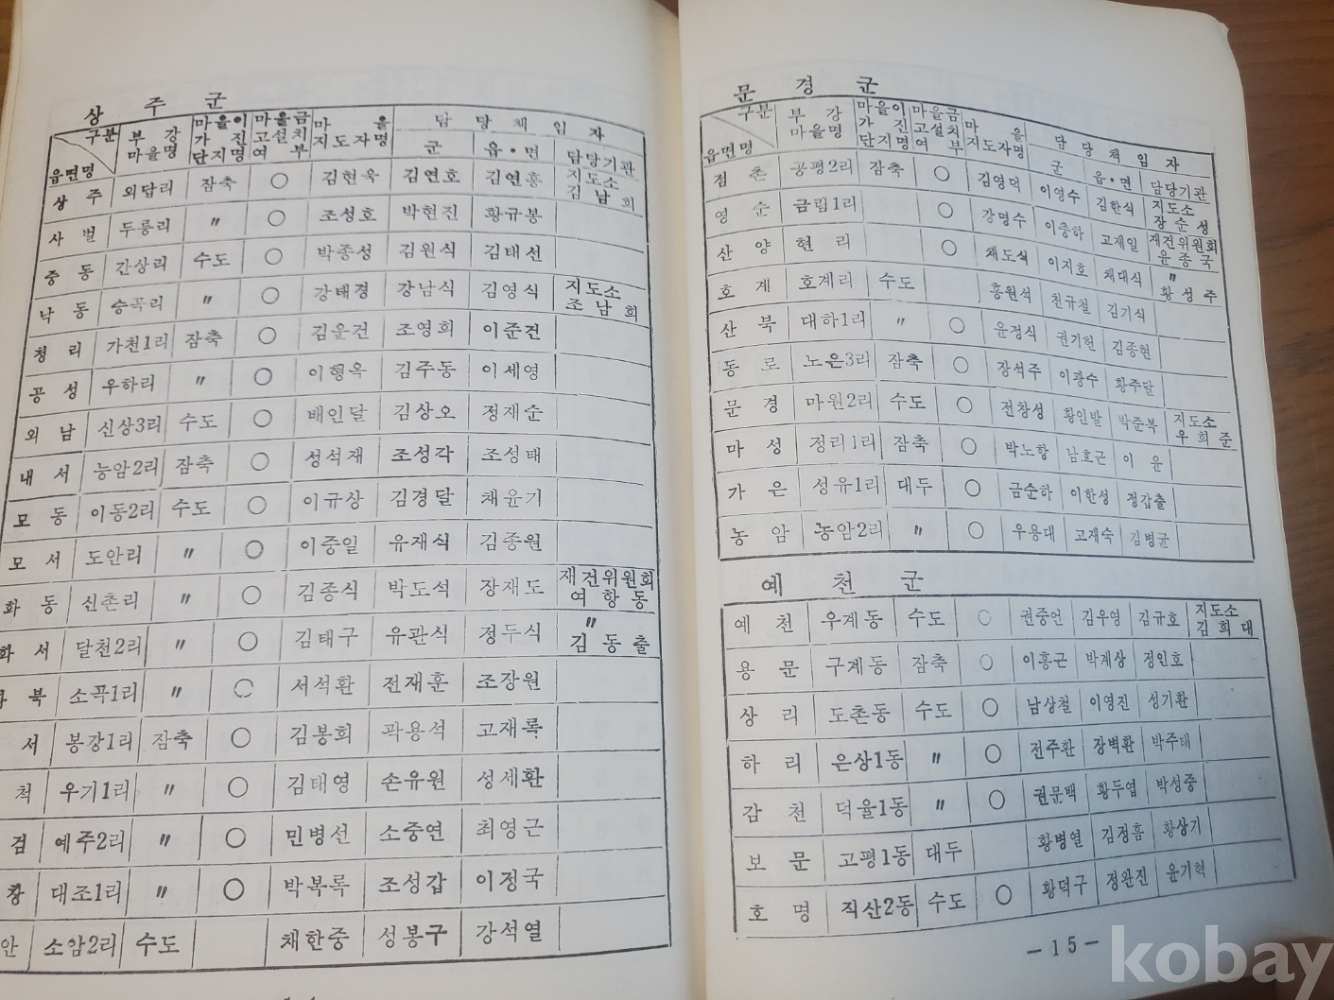 상 주 군
구분 읍면명 부강마을명 마을이 가진 단지명 마을금고설치여부 마을지도자명 담당책임자 군 읍·면 담당기관
상 주 외답리 잠축 ○ 김현욱 김연호 김연홍 지도소 김남희
사 벌 두릉리 〃 ○ 조성호 박현진 황규봉
중 동 간상리 수도 ○ 박종성 김원식 김태선
낙 동 승곡리 〃 ○ 강태경 강남식 김영식 지도소 조남희
청 리 가천1리 잠축 ○ 김운건 조영희 이준건
공 성 우하리 〃 ○ 이형옥 김주동 이세영
외 남 신상3리 수도 ○ 배인달 김상오 정재순
내 서 능암2리 잠축 ○ 성석재 조성각 조성태
모 동 이동2리 수도 ○ 이규상 김경달 채윤기
모 서 도안리 〃 ○ 이중일 유재식 김종원
화 동 신촌리 〃 ○ 김종식 박도석 장재도 재건위원회 여항동
화 서 달천2리 〃 ○ 김태구 유관식 정두식 〃 김동출
북 소곡1리 〃 ○ 서석환 전재훈 조장원
서 봉강1리 잠축 ○ 김봉희 곽용석 고재록
척 우기1리 〃 ○ 김태영 손유원 성세환
검 예주2리 〃 ○ 민병선 소중연 최영근
창 대조1리 〃 ○ 박복록 조성갑 이정국
안 소암2리 수도 채한중 성봉구 강석열
문 경 군
구분 읍면명 부강마을명 마을이 가진 단지명 마을금고설치여부 마을지도자명 담당책임자 군 읍·면 담당기관
점 촌 공평2리 잠축 ○ 김영덕 이영수 김한식 지도소 장순성
영 순 금림1리 ○ 강명수 이충하 고재일 재건위원회 윤종국
산 양 현리 ○ 채도식 이지호 채대식 〃 황성주
호 계 호계리 수도 홍원석 천규철 김기식
산 북 대하1리 〃 ○ 윤정식 권기헌 김종현
동 로 노은3리 잠축 ○ 장석주 이광수 황주달
문 경 마원2리 수도 ○ 전창성 황인발 박준복 지도소 우희준
마 성 정리1리 잠축 ○ 박노항 남효근 이윤
가 은 성유1리 대두 ○ 금순하 이한성 정갑출
농 암 농암2리 〃 ○ 우용대 고재숙 김병균
예 천 군
예 천 우계동 수도 ○ 권중언 김우영 김규호 지도소 김희대
용 문 구계동 잠축 ○ 이홍근 박계상 정인호
상 리 도촌동 수도 ○ 남상철 이영진 성기환
하 리 은상1동 〃 ○ 전주환 장벽환 박주태
감 천 덕율1동 〃 ○ 권문백 황두엽 박성중
보 문 고평1동 대두 황병열 김정흠 황상기
호 명 직산2동 수도 ○ 황덕구 정완진 윤기혁
-15-
kobay